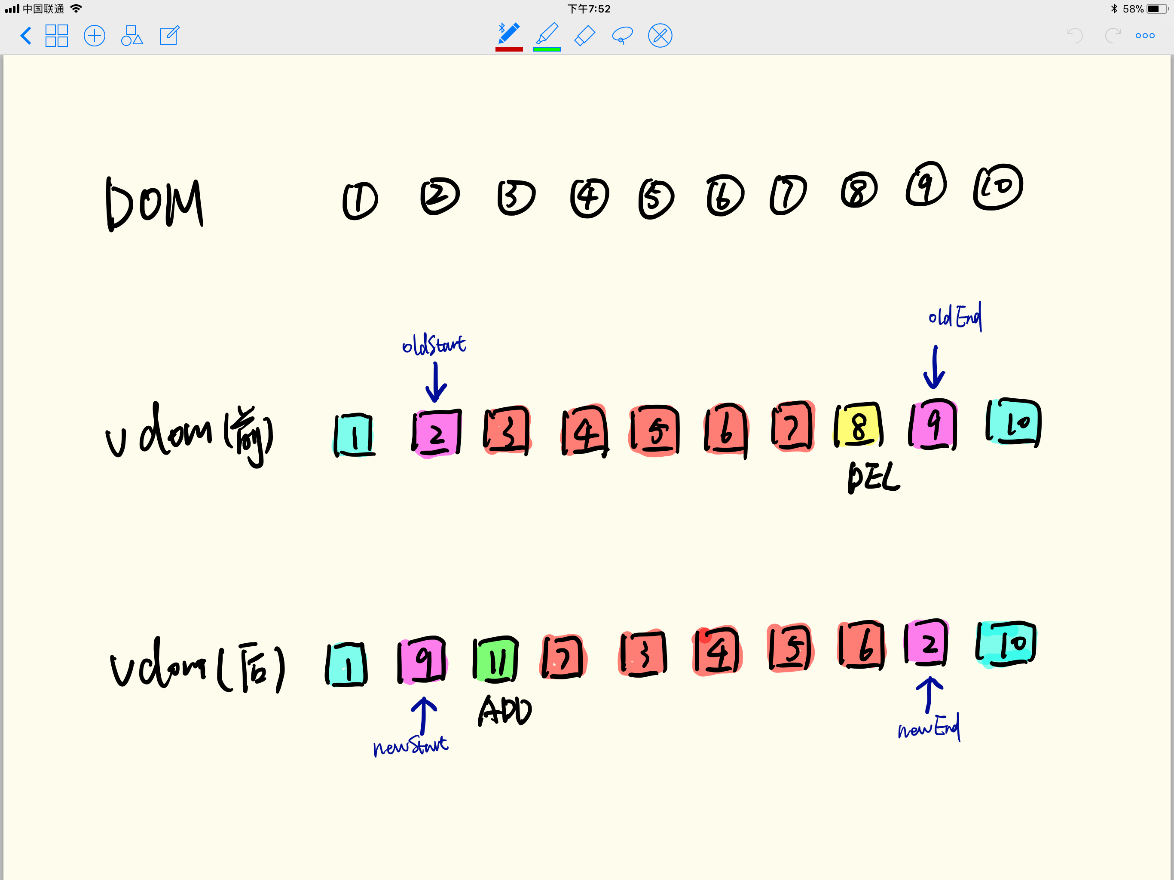 中国联通 下午7:52 58%
DOM ① ② ③ ④ ⑤ ⑥ ⑦ ⑧ ⑨ ⑩
oldStart oldEnd
vdom(前) 1 2 3 4 5 6 7 8 9 10
DEL
vdom(后) 1 9 11 7 3 4 5 6 2 10
ADD
newStart newEnd